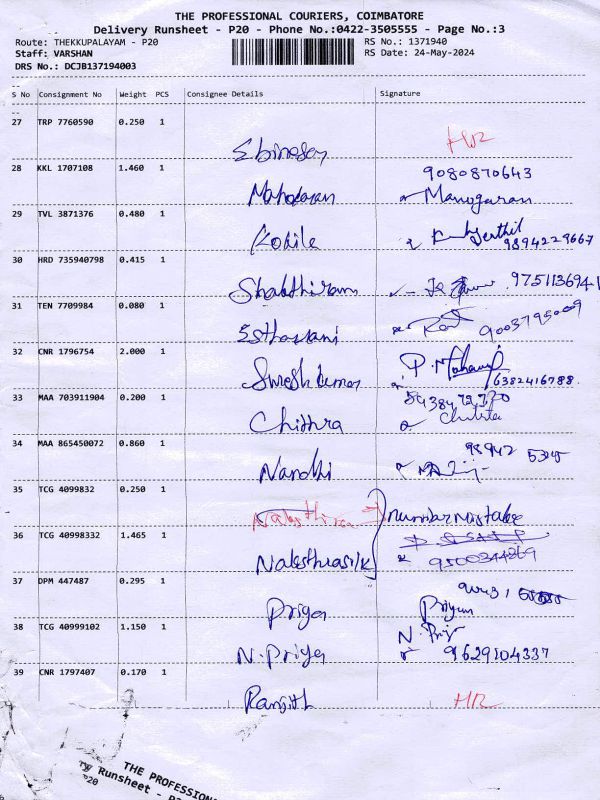 THE PROFESSIONAL COURIERS, COIMBATORE
Delivery Runsheet - P20 - Phone No.:0422-3505555 - Page No.:3
Route: THEKKUPALAYAM - P20 RS No.: 1371940
Staff: VARSHAN RS Date: 24-May-2024
DRS No.: DCJB137194003
S No Consignment No Weight PCS Consignee Details Signature
27 TRP 7760590 0.250 1
28 KKL 1707108 1.460 1 9080870643
Manogaran
29 TVL 3871376 0.480 1 Kokile Senthil
9894229667
30 HRD 735940798 0.415 1 Shakthiram 9751136941
31 TEN 7709984 0.080 1 9003795009
32 CNR 1796754 2.000 1 Sureshkumar 6382416788
33 MAA 703911904 0.200 1 Chithra Chithra
34 MAA 865450072 0.860 1 Nandhi
35 TCG 4099832 0.250 1 number mistake
36 TCG 40998332 1.465 1 9500344869
37 DPM 447487 0.295 1 Priya
38 TCG 40999102 1.150 1 N. Priya N. Priya
9629104337
39 CNR 1797407 0.170 1 Ranjith
THE PROFESSION
Runsheet - P2
P20